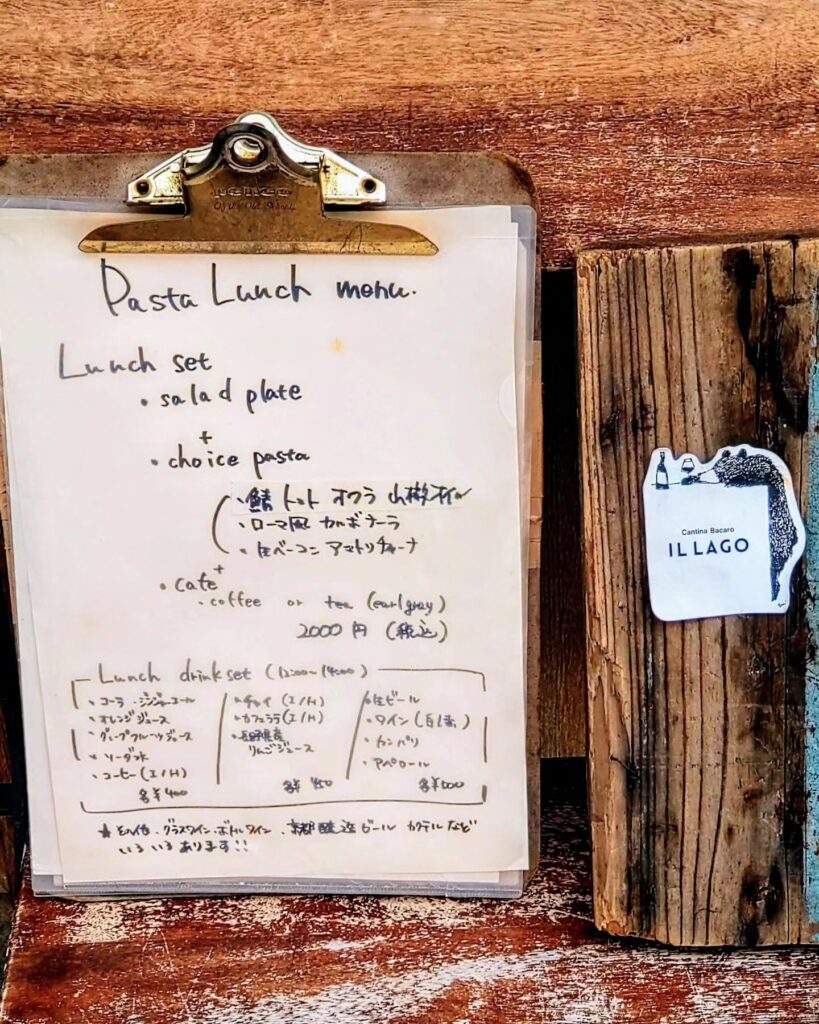 Pasta Lunch menu.
Lunch set
・salad plate
+
・choice pasta
・鯖 トマト オクラ 山椒オイル
・ローマ風 カルボナーラ
・生ベーコン アマトリチャーナ
+
・cafe
・coffee or tea (earlgray)
2000円 (税込)
Lunch drink set (12:00~14:00)
・コーラ ・ジンジャーエール
・オレンジジュース
・グレープフルーツジュース
・ソーダ
・コーヒー (I/H)
各¥400
・チャイ (I/H)
・カフェラテ (I/H)
・長野県産
りんごジュース
各¥450
・生ビール
・ワイン (白/赤)
・カンパリ
・アペロール
各¥500
★ その他・グラスワイン・ボトルワイン、京都醸造ビール カクテルなど
いろいろあります!!
Cantina Bacaro
IL LAGO